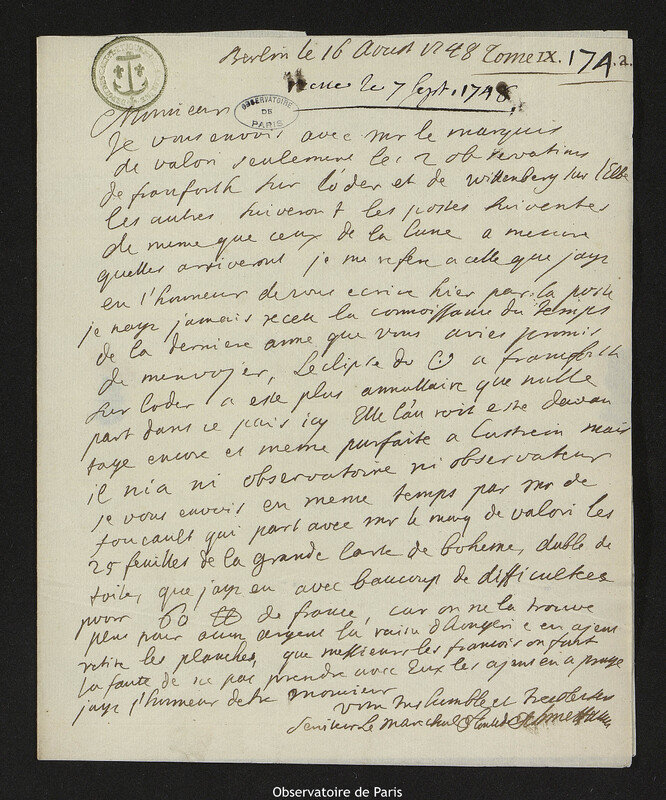 Berlin le 16 Aoust 1748 Tome IX. 17A.2.
le 7 Sept. 1748.
OBSERVATOIRE DE PARIS
Monsieur
Je vous envois avec mr le marquis
de valori seulement les 2 observations
de franforth sur l'oder et de wittenberg sur l'Elbe
les autres suiveront les postes suiventes
de meme que ceux de la lune a mesure
quelles arriveront je me refere a celle que jaye
eu l'honneur de vous ecrire hier par la poste
je naye jamais receu la connoissance du temps
de la derniere anne que vous avies promis
de menvojer, Leclipse du a francforth
sur loder a este plus annullaire que nulle
part dans ce pais icy Elle lau roit este davan
tage encore et meme parfaite a Custrein mais
il nia ni observatoire ni observateur
je vous envois en meme temps par mr de
foucault qui part avec mr le marq de valori les
25 feuilles de la grande Carte de boheme, duble de
toile, que jaye eu avec beaucoup de difficultees
pour 60 tt de france, car on ne la trouve
plus pour aucun argent la raine d'hongeri e en ajent
retire les planches, que messieurs les francois on fait
la faute de ne pas prendre avec Eux les ajent en a prage
jaye l'honneur detre monsieur
votre tres humble et
Serviteur Le marechal
Observatoire de Paris